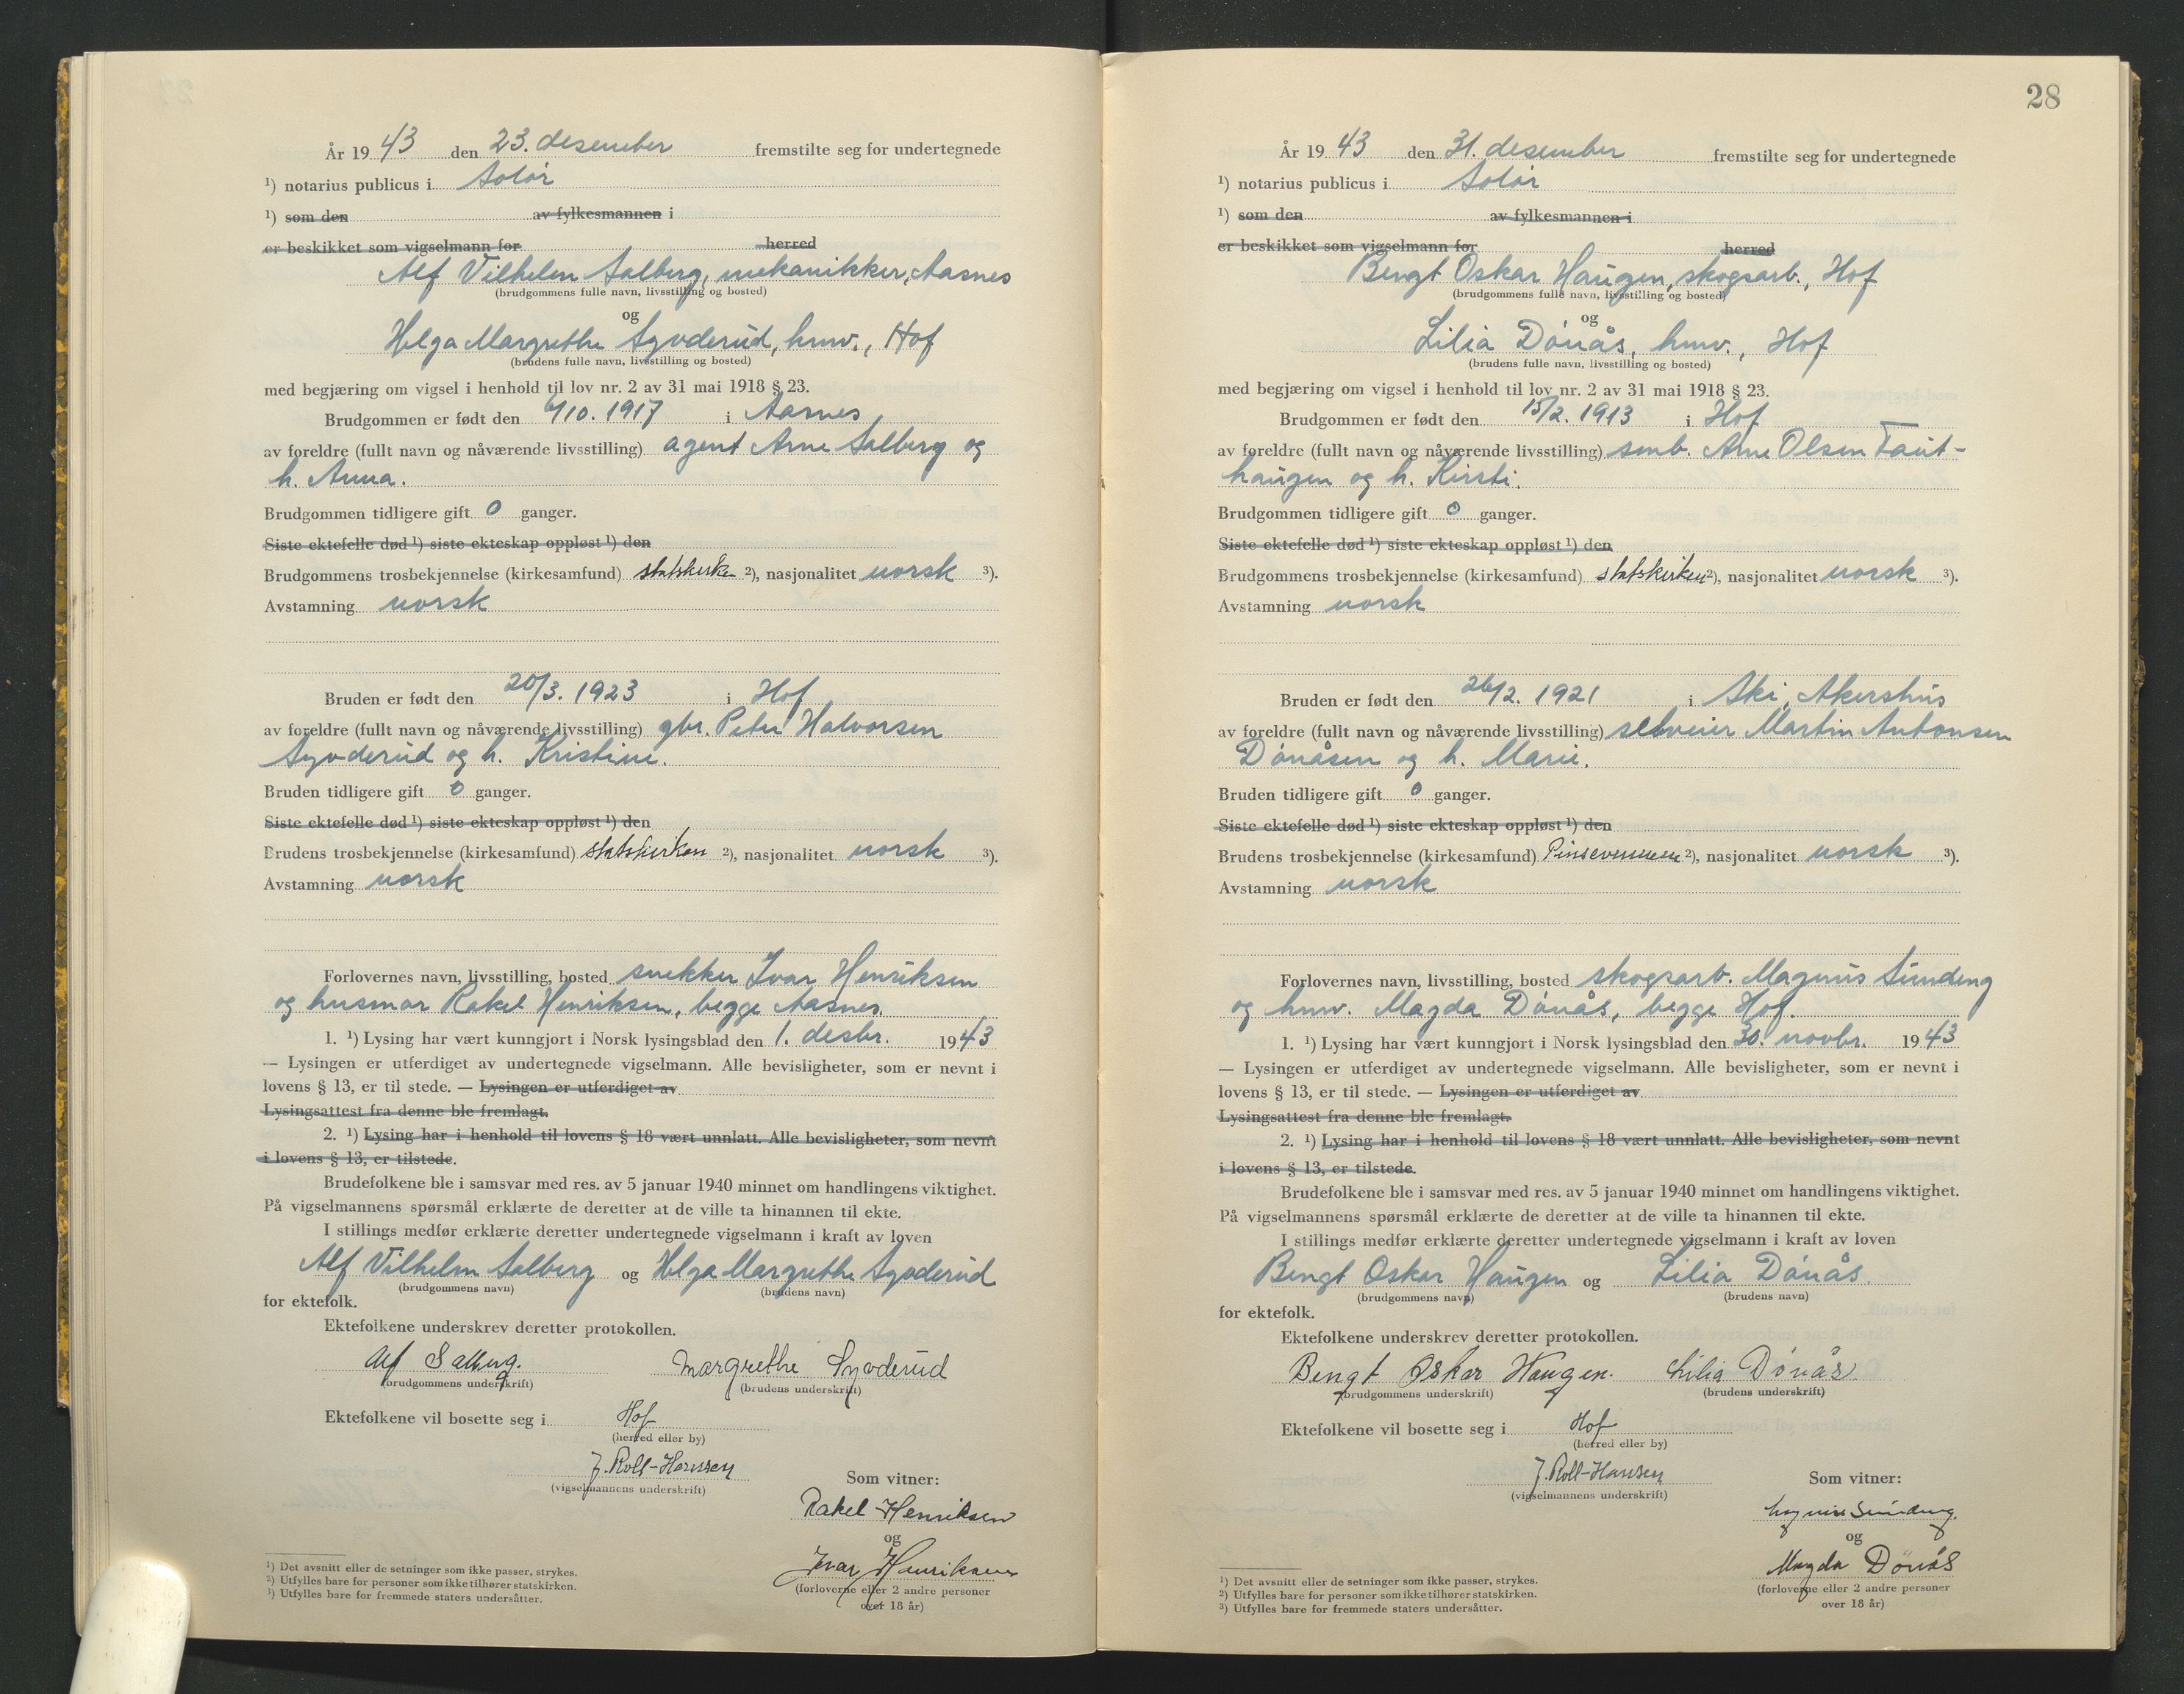 År 19 43 den 23. desember fremstilte seg for undertegnede
¹) notarius publicus i Solør
¹) som den av fylkesmannen i
er beskikket som vigselmann for herred
Alf Vilhelm Solberg, mekanikker, Aasnes
(brudgommens fulle navn, livsstilling og bosted)
og
Helga Margrethe Syoderud, hmv., Hof
(brudens fulle navn, livsstilling og bosted)
med begjæring om vigsel i henhold til lov nr. 2 av 31 mai 1918 § 23.
Brudgommen er født den 6/10. 1917 i Aasnes
av foreldre (fullt navn og nåværende livsstilling) agent Arne Solberg og
h. Anna.
Brudgommen tidligere gift 0 ganger.
Siste ektefelle død ¹) siste ekteskap oppløst ¹) den
Brudgommens trosbekjennelse (kirkesamfund) statskirke ²), nasjonalitet norsk ³).
Avstamning norsk
Bruden er født den 20/3. 1923 i Hof
av foreldre (fullt navn og nåværende livsstilling) gbr. Peter Halvorsen
Syoderud og h. Kristine.
Bruden tidligere gift 0 ganger.
Siste ektefelle død ¹) siste ekteskap oppløst ¹) den
Brudens trosbekjennelse (kirkesamfund) statskirken ²), nasjonalitet norsk ³).
Avstamning norsk
Forlovernes navn, livsstilling, bosted snekker Ivar Henriksen
og husmor Rakel Henriksen, begge Aasnes.
1. ¹) Lysing har vært kunngjort i Norsk lysingsblad den 1. desbr. 1943
— Lysingen er utferdiget av undertegnede vigselmann. Alle bevisligheter, som er nevnt i
lovens § 13, er til stede. — Lysingen er utferdiget av
Lysingsattest fra denne ble fremlagt.
2. ¹) Lysing har i henhold til lovens § 18 vært unnlatt. Alle bevisligheter, som nevnt
i lovens § 13, er tilstede.
Brudefolkene ble i samsvar med res. av 5 januar 1940 minnet om handlingens viktighet.
På vigselmannens spørsmål erklærte de deretter at de ville ta hinannen til ekte.
I stillings medfør erklærte deretter undertegnede vigselmann i kraft av loven
Alf Vilhelm Solberg og Helga Margrethe Syoderud
(brudgommens navn) (brudens navn)
for ektefolk.
Ektefolkene underskrev deretter protokollen.
Alf Solberg. Margrethe Syoderud
(brudgommens underskrift) (brudens underskrift)
Ektefolkene vil bosette seg i Hof
(herred eller by)
J. Roll-Hansen
(vigselmannens underskrift)
Som vitner:
Rakel Henriksen
og
Ivar Henriksen
(forloverne eller 2 andre personer
over 18 år)
¹) Det avsnitt eller de setninger som ikke passer, strykes.
²) Utfylles bare for personer som ikke tilhører statskirken.
³) Utfylles bare for fremmede staters undersåtter.
28
År 19 43 den 31. desember fremstilte seg for undertegnede
¹) notarius publicus i Solør
¹) som den av fylkesmannen i
er beskikket som vigselmann for herred
Bengt Oskar Haugen, skogsarb., Hof
(brudgommens fulle navn, livsstilling og bosted)
og
Lilia Dónås, hmv., Hof
(brudens fulle navn, livsstilling og bosted)
med begjæring om vigsel i henhold til lov nr. 2 av 31 mai 1918 § 23.
Brudgommen er født den 15/2. 1913 i Hof
av foreldre (fullt navn og nåværende livsstilling) smb. Arne Olsen Taut-
haugen og h. Kirsti.
Brudgommen tidligere gift 0 ganger.
Siste ektefelle død ¹) siste ekteskap oppløst ¹) den
Brudgommens trosbekjennelse (kirkesamfund) statskirken ²), nasjonalitet norsk ³).
Avstamning norsk
Bruden er født den 26/2. 1921 i Ski, Akershus
av foreldre (fullt navn og nåværende livsstilling) selveier Martin Antonsen
Dónåsen og h. Marie.
Bruden tidligere gift 0 ganger.
Siste ektefelle død ¹) siste ekteskap oppløst ¹) den
Brudens trosbekjennelse (kirkesamfund) Pinsevennene ²), nasjonalitet norsk ³).
Avstamning norsk
Forlovernes navn, livsstilling, bosted skogsarb. Magnus Sundeng
og hmv. Magda Dónås, begge Hof.
1. ¹) Lysing har vært kunngjort i Norsk lysingsblad den 30. novbr. 1943
— Lysingen er utferdiget av undertegnede vigselmann. Alle bevisligheter, som er nevnt i
lovens § 13, er til stede. — Lysingen er utferdiget av
Lysingsattest fra denne ble fremlagt.
2. ¹) Lysing har i henhold til lovens § 18 vært unnlatt. Alle bevisligheter, som nevnt
i lovens § 13, er tilstede.
Brudefolkene ble i samsvar med res. av 5 januar 1940 minnet om handlingens viktighet.
På vigselmannens spørsmål erklærte de deretter at de ville ta hinannen til ekte.
I stillings medfør erklærte deretter undertegnede vigselmann i kraft av loven
Bengt Oskar Haugen og Lilia Dónås.
(brudgommens navn) (brudens navn)
for ektefolk.
Ektefolkene underskrev deretter protokollen.
Bengt Oskar Haugen. Lilia Dónås
(brudgommens underskrift) (brudens underskrift)
Ektefolkene vil bosette seg i Hof
(herred eller by)
J. Roll-Hansen
(vigselmannens underskrift)
Som vitner:
Magnus Sundeng.
og
Magda Dónås
(forloverne eller 2 andre personer
over 18 år)
¹) Det avsnitt eller de setninger som ikke passer, strykes.
²) Utfylles bare for personer som ikke tilhører statskirken.
³) Utfylles bare for fremmede staters undersåtter.